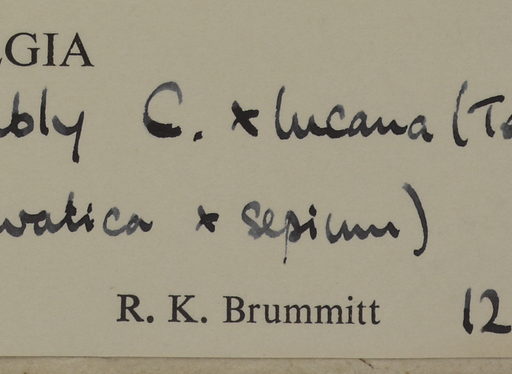 EGIA
bly C. × lucana (Te
vatica × sepium)
R. K. Brummitt 12